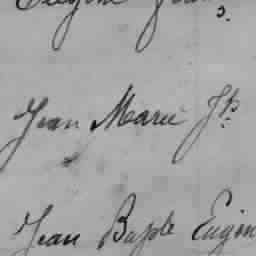 Jean Marie Jh
Jean Baple Eugèn